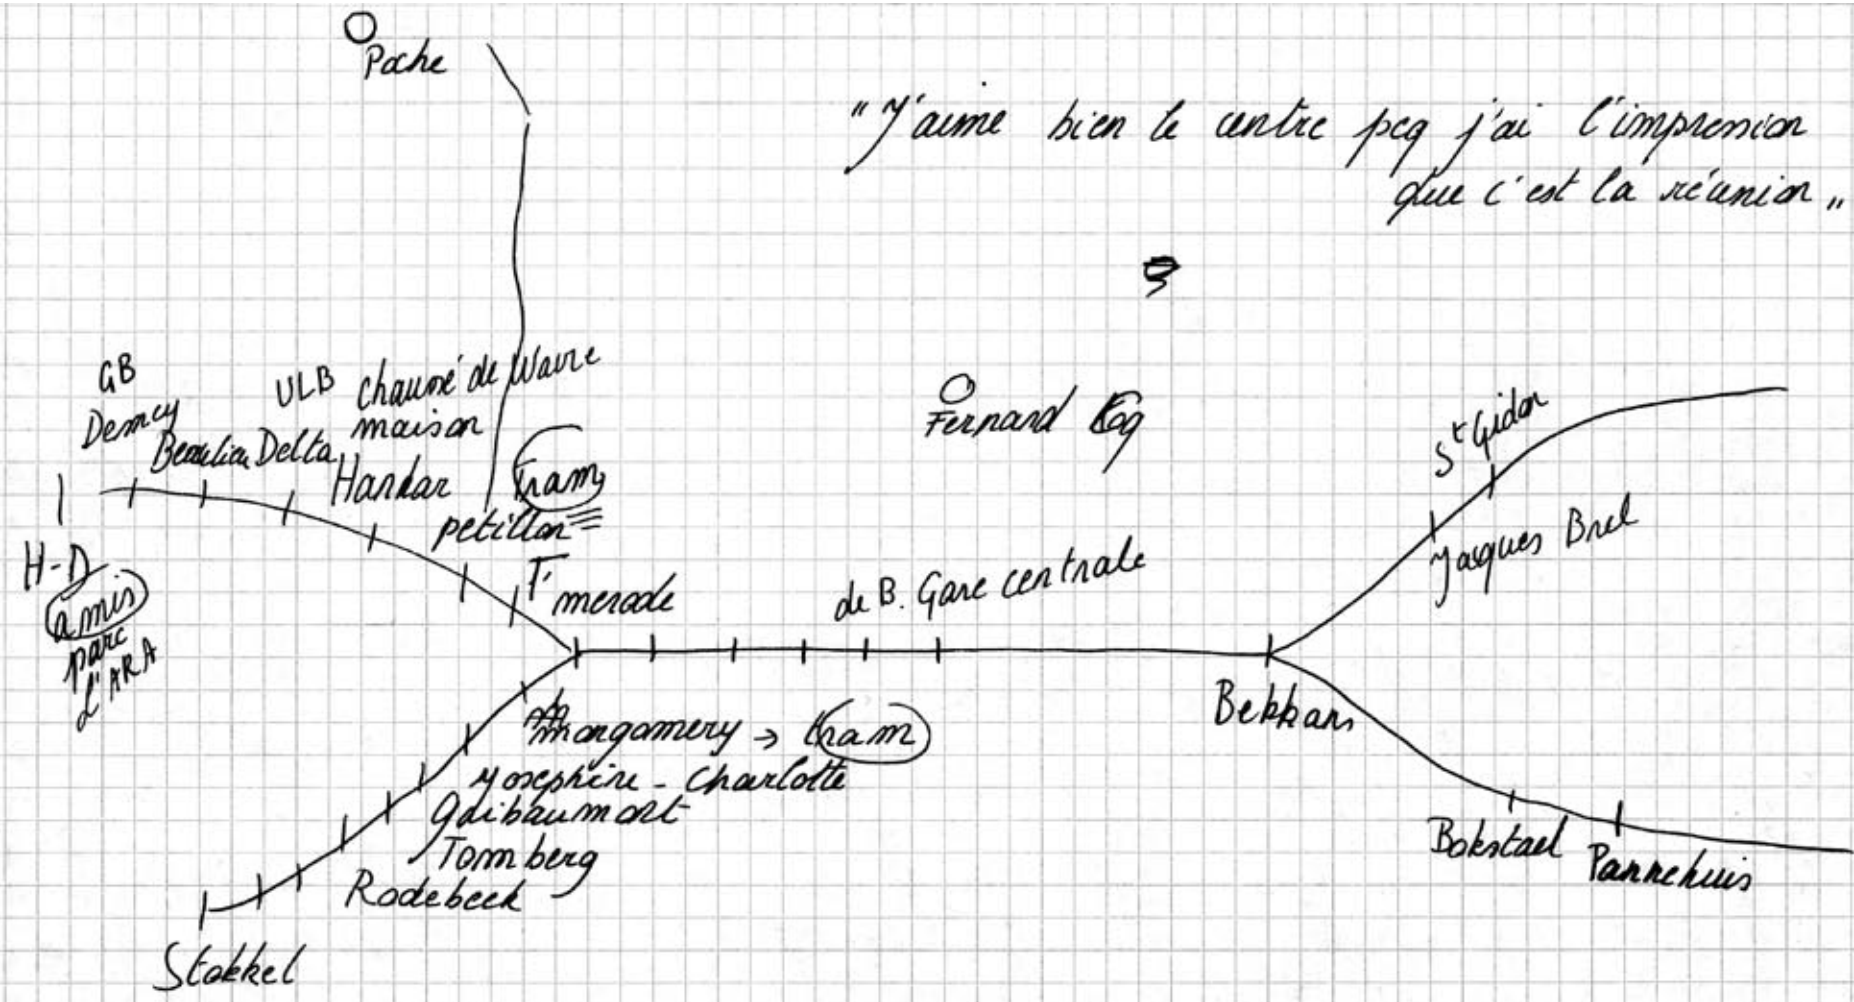 Poche
"J'aime bien le centre pcq j'ai l'impression
que c'est la réunion"
GB
Demey
Beaulieu
Delta
ULB
chaussé de Wavre
maison
Hankar
tram
petillon
H-D
amis
parc
L'ARA
T.
merode
de B.
Gare centrale
Fernand Coq
St Gidon
Jacques Brel
Bekkans
Bokstael
Pannehuis
Mongomery → tram
Josephine - Charlotte
Gribaumont
Tomberg
Rodebeek
Stokkel